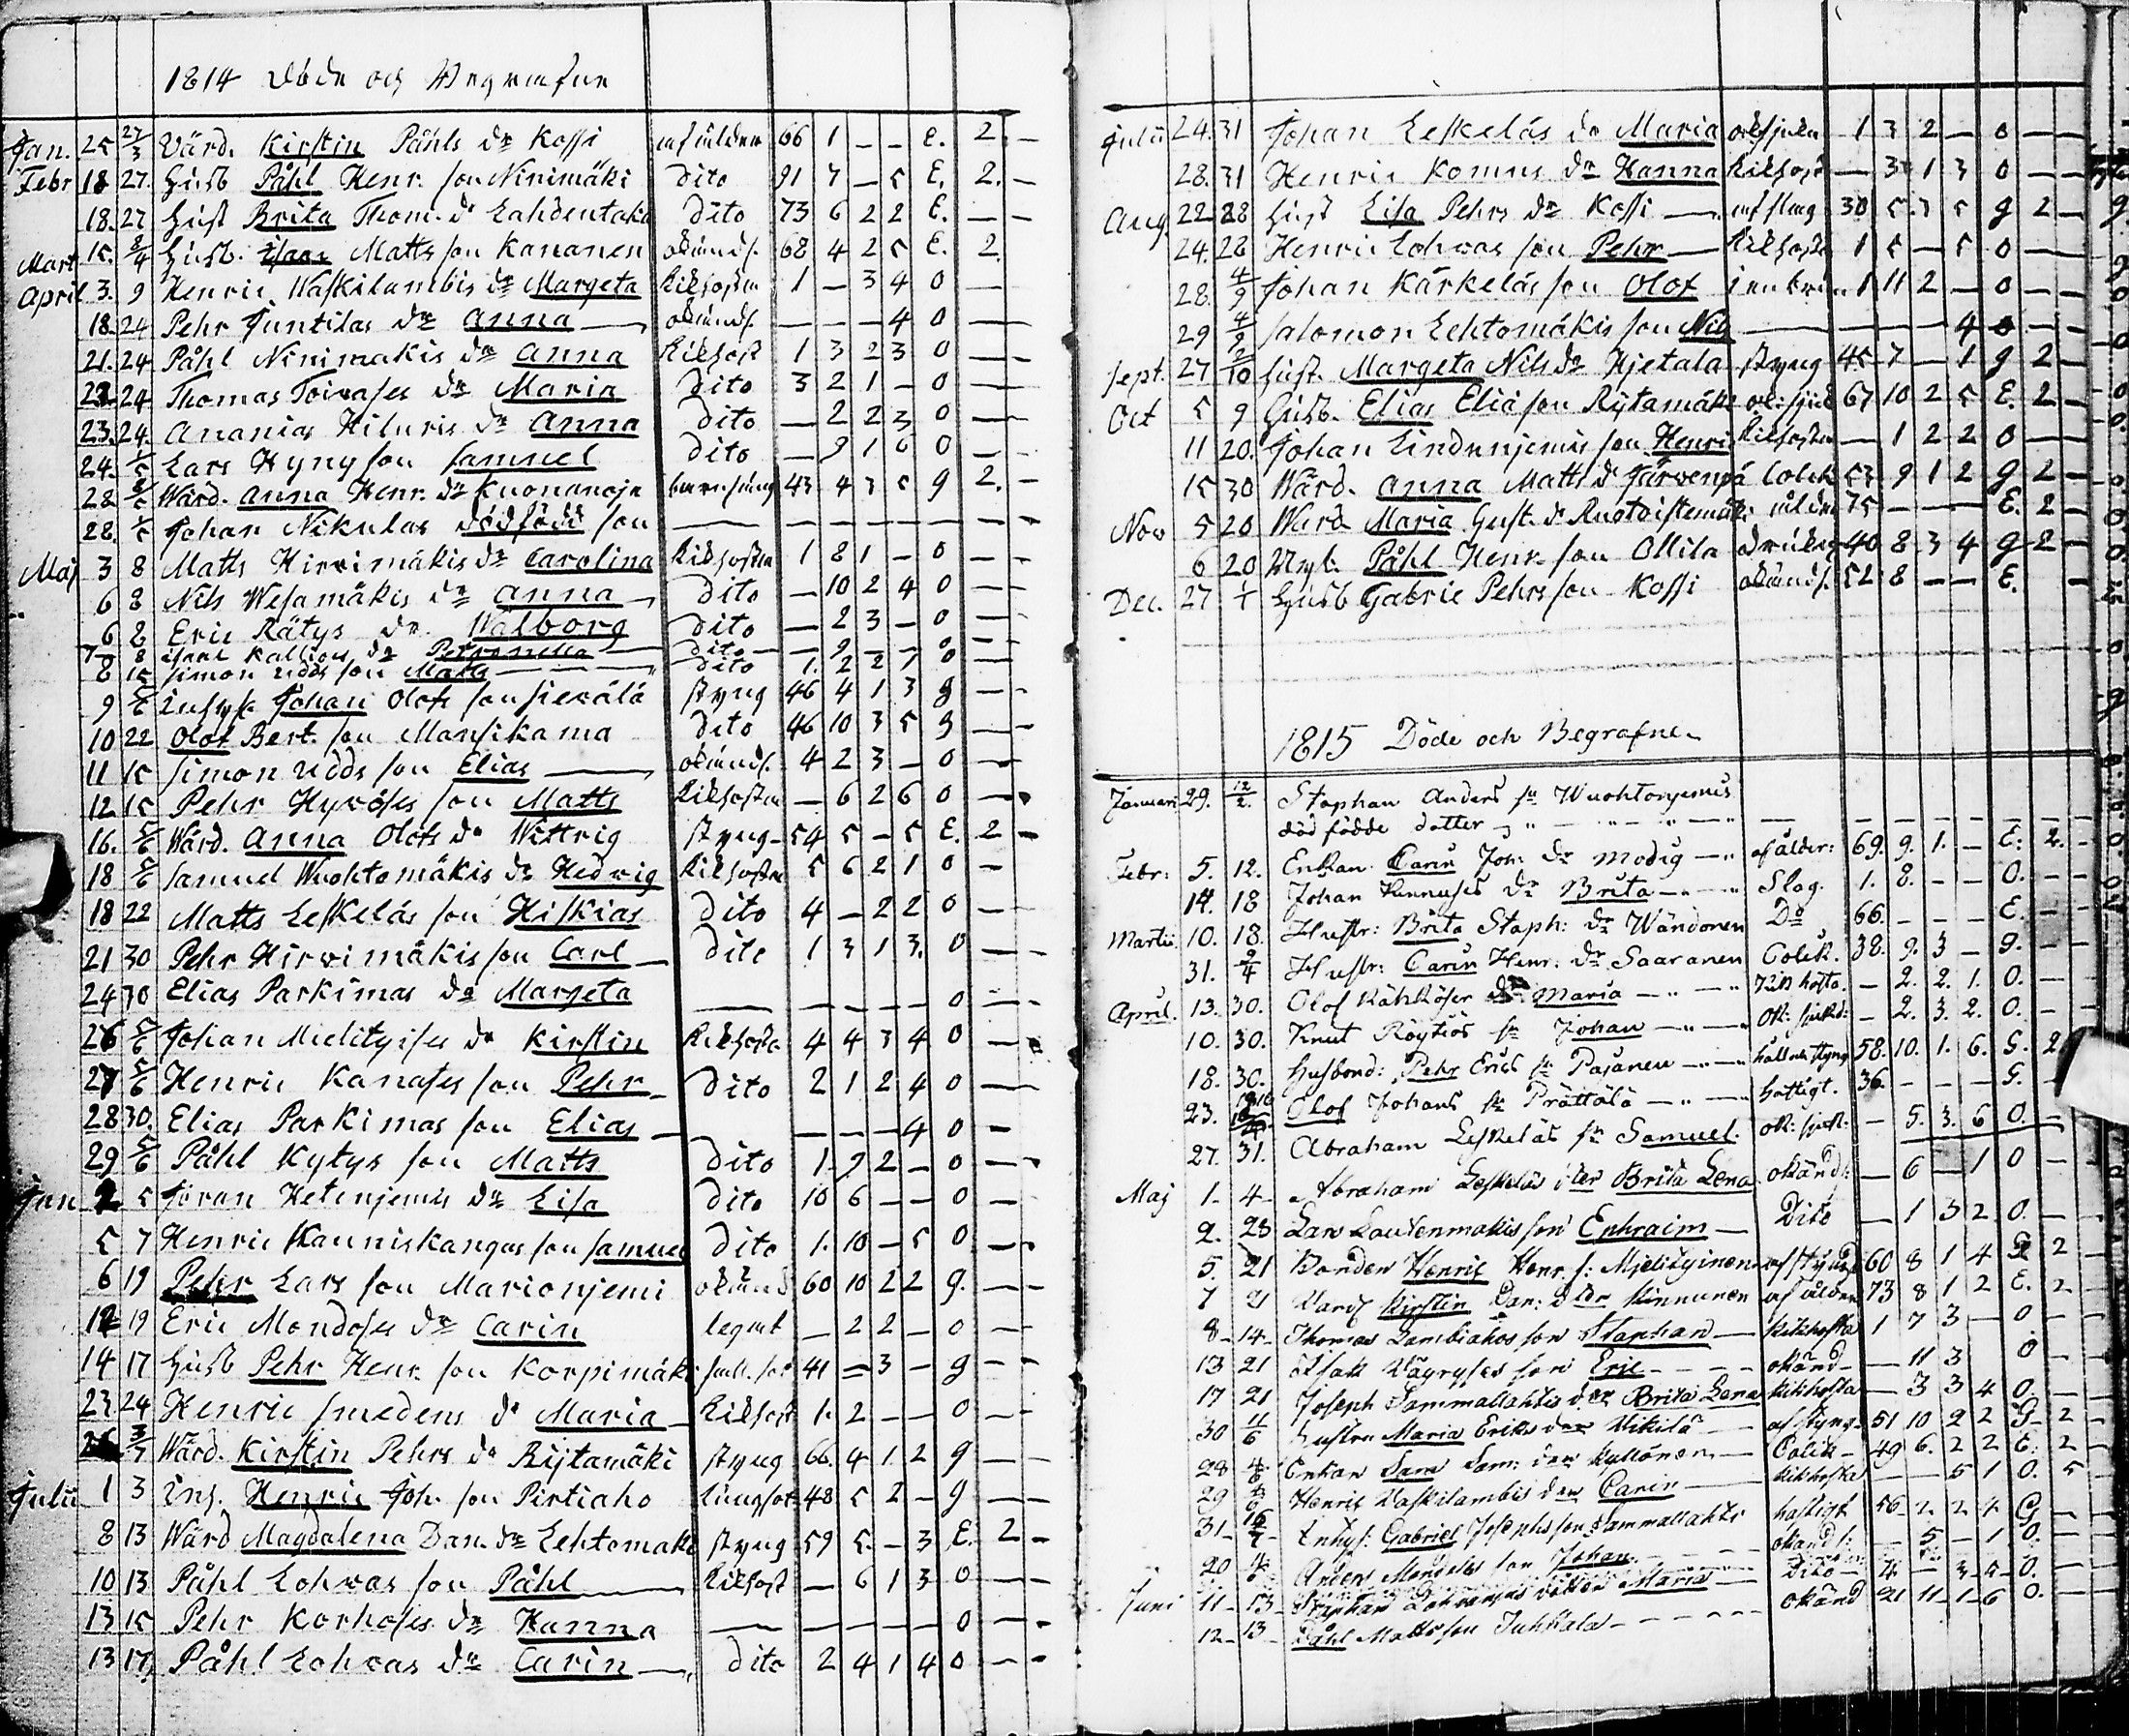 1814 Döde och Begrafne
Jan. 25 27/3 Värd. Kirstin Påhls dr Kossi af ålder 66 1 - - E. 2 -
Febr 18 27. Husb Påhl Henr. son Ninimäki dito 91 7 - 5 E. 2. -
18. 27 Hust Brita Thom. dr Lahdentaka dito 73 6 2 2 E. - -
Mart 15. 3/4 Husb. Matts son Kananen okänd s. 68 4 2 5 E. 2.
April 3. 9 Henric Waskilambis dr Margeta Kikhosta 1 - 3 4 0 -
18. 24 Pehr Juntilas dr Anna okänd s. - - - 4 0 -
21. 24 Påhl Ninimakis dr Anna Kikhost 1 3 2 3 0 -
22. 24 Thomas Toivases dr Maria Dito 3 2 1 - 0 -
23. 24. Ananias Kiluris dr Anna Dito - 2 2 3 0 -
24. 1/5 Lars Hyny son Samuel Dito - 9 1 6 0 -
28 Wärd. Anna Henr. dr Kuonanoja barnsäng 43 4 3 5 g 2. -
28. Johan Nikulas dödfödd son - - - - - - - -
Maj 3 8 Matts Hirvimäkis dr Carolina Kikhosta 1 8 1 - 0 -
6 8 Nils Wesamäkis dr Anna Dito - 10 2 4 0 -
6 8 Eric Rätys dr Walborg Dito - 2 3 - 0 -
7 8 Kallios dr Petronella Dito - 9 - - 0 -
8 15 Simon Udds son Matts Dito 1. 2 2 1 0 -
9 5/6 Inhys Johan Olofs son Sierälä styng 46 4 1 3 g - -
10 22 Olof Bert. son Mansikama Dito 46 10 3 5 g - -
11 15 Simon Udds son Elias okänd s. 4 2 3 - 0 -
12 15 Pehr Hyvöses son Matts Kikhosta - 6 2 6 0 - -
16. 5/6 Wärd. Anna Olofs dr Wittvig styng 54 5 - 5 E. 2 -
18 5/6 Samuel Wuohtomäkis dr Hedvig Kikhosta 5 6 2 1 0 -
18 22 Matts Leskeläs son Hiskias Dito 4 - 2 2 0 -
21 30 Pehr Hirvimäkis son Carl Dito 1 3 1 3. 0 - -
24 30 Elias Parkimas dr Margeta - - - - - 0 - -
26 5/6 Johan Mielityises dr Kirstin Kikhosta 4 4 3 4 0 - -
27 5/6 Henric Kanases son Pehr Dito 2 1 2 4 0 -
28 30. Elias Parkimas son Elias - - - - 4 0 -
29 5/6 Påhl Kytys son Matts Dito 1. 9 2 - 0 - -
Jun 2 5 Jöran Hetenjemis dr Lisa Dito 10 6 - - 0 - -
5 7 Henric Kauniskangas son Samuel Dito 1. 10 - 5 0 - -
6 19 Pehr Lars son Marionjemi okänd 60 10 2 2 g. - -
12 19 Eric Mondoses dr Carin - 2 2 - 0 - -
14 17 Husb Pehr Henr. son Korpimäki 41 - 3 - g - -
23 24 Henric Smedens dr Maria Kikhost 1. 2 - - 0 - -
3/7 Wärd. Kirstin Pehrs dr Rijtamäki styng 66. 4 1. 2 g - -
Julii 1 3 Inh. Henric Joh. son Pirtiaho Lungsot 48 5 2 - g - -
8 13 Wärd Magdalena Dan. dr Lehtomäki styng 59 5. - 3 E. 2 -
10 13 Påhl Lohvas son Påhl Kikhost - 6 1 3 0 - -
13 15 Pehr Korhoses dr Hanna - - - - - 0 - -
13 17. Påhl Lohvas dr Carin Dito 2 4 1 4 0 - -
Julii 24. 31 Johan Leskeläs dr Maria 1 3 2 - 0 - -
28. 31 Henric Komus dr Hanna Kikhost - 3 1 3 0 - -
Aug. 22 28 Hust Lisa Pehrs dr Kossi af slag 30 5. 3 5 g 2 -
24. 28 Henric Lohvas son Pehr Kikhosta 1 5 - 5 0 -
28. 4/9 Johan Kärkeläs son Olof 1 11 2 - 0 -
29 4/9 Salomon Lehtomäkis son Nils - - - 4 0 -
Sept. 27 2/10 Hust. Margeta Nils dr Hjetala styng 45 7 - 1 g 2 -
Oct 5 9 Husb. Elias Elia son Rytamäki ok. sjuk 67 10 2 5 E. 2 -
11 20. Johan Lindenjemis son Henric Kikhosta - 1 2 2 0 - -
15 30 Wärd. Anna Matts dr Järvenpä Colik 53 9 1 2 g 2 -
Nov 5 20 Wärd Maria Gust. dr ålder 75 - - - E. 2 -
6 20 Påhl Henr. son Ollila 40 8 3 4 g 2 -
Dec. 27 Husb Gabriel Pehrs son Kossi okänd s. 52 8 - - E. -
1815 Döde och Begrafne
Januari 29. 12/2. Staphan Anders sn Wuohtonjemis
död födde dotter
Febr: 5. 12. Enkan Carin Joh: dr Modig af ålder: 69. 9. 1. - E: 2. -
14. 18 Johan Kinnuses dr Brita Slag. 1. 8. - - 0. -
Martii 10. 18. Hustr: Brita Staph: dr Wändonen Do 66. - - - E. -
31. 2/4 Hustr: Carin Henr: dr Saaranen Colik. 38. 9. 3 - g. -
April. 13. 30. Olof Kähköses dr Maria Kikhosta. - 2. 2. 1. 0. -
10. 30. Knut Röytiös sn Johan ok: sjukd: - 2. 3. 2. 0. -
18. 30. Husbond: Pehr Erics sn Pajanen håll och styng 58. 10. 1. 6. G. 2
23. Olof Johans sn Prättälä hastigt. 36. - - - G. -
27. 31. Abraham Leskeläs sn Samuel. ok: sjuk: - 5. 3. 6 0. -
Maj 1. 4. Abraham Leskeläs dter Brita Lena okänd: - 6 - 1 0 -
2. 23 Lars Lautenmakis son Ephraim Dito - 1 3 2 0. -
5. 21 Bonden Henric Henr. s: Mielityinen af styng 60 8 1 4 G 2 -
7 21 Vard Kirstin Dan: dter Kinnunen af ålder 73 8 1 2 E. 2 -
8 - 14 - Thomas Lambiahos son Staphan Kikhosta 1 7 3 - 0 -
13 21 Isak Wäyryses son Eric okänd - 11 3 0 -
17 21 Joseph Sammallahtis dter Brita Lena kikhosta - 3 3 4 0. -
30 11/6 Hustru Maria Eriks dter Mikilä af styng - 51 10 2 2 G - 2 -
28 4/6 Enkan Sara Sam: dter Kyllönen Colik - 49 6. 2 2 E: 2 -
29 Henric Vaskilambis dter Carin kikhosta - - 5 1 0. 5
31 - Inhys: Gabriel Josephs son Sammallahti hastigt 56 - 2 - 2 4 G -
20 Anders Mondolas son Johan okänd: - 5 - 1 0. -
Juni 11 - 13 - Staphan Lohvas dotter Maria Dito - 3 - 0. -
12 - 13 - Påhl Matts son Juhkala okänd 21 11 - 1 - 6 0.